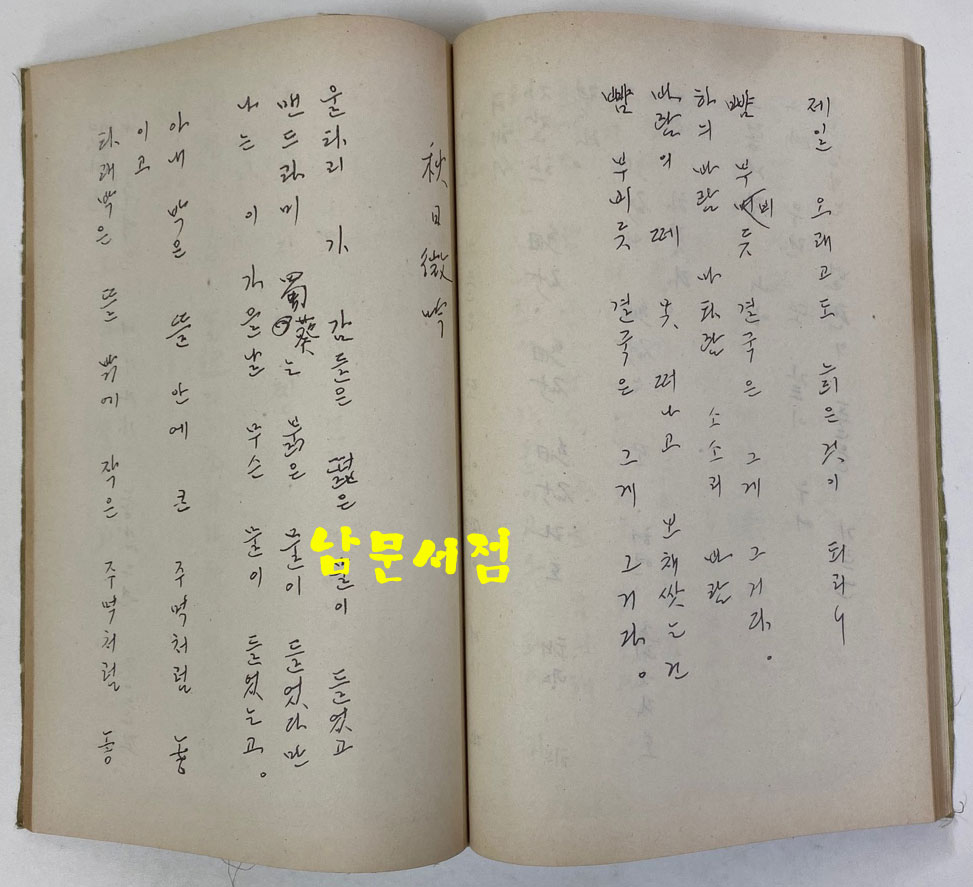 제일 오래고도 늙은것이 되리니
뺨 부비듯 결국은 그게 그거다.
하늬 바람 마파람 소소리 바람
바람의 떼 못 떠나고 보채쌋는건
뺨 부비듯 결국은 그게 그거다.
秋日微吟
울타리 가 감들은 떫은 물이 들었고
맨드라미 蜀葵는 붉은 물이 들었다만
나는 이 가을날 무슨 물이 들었는고.
아내 박은 뜰 안에 큰 주먹처럼 놓
이고
타래박은 뜰 밖에 작은 주먹처럼 놓
남문서점